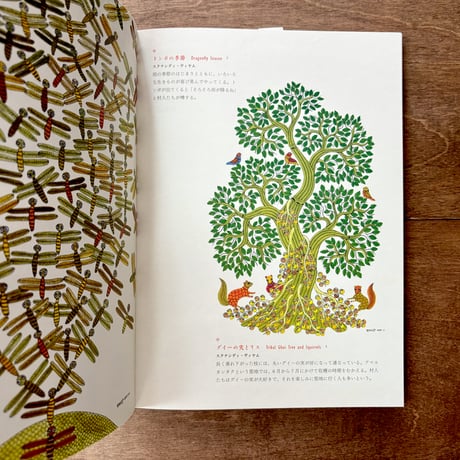 トンボの季節 Dragonfly Season
スクナンディ・ヴィヤム
雨の季節のはじまりとともに、いろいろ
な生きものが喜び勇んでやってくる。ト
ンボが出てくると「そろそろ雨が降るね」
と村人たちが噂する。
グイーの実とリス Trikai Ghui Tree and Squirrels
スクナンディ・ヴィヤム
長く垂れ下がった枝には、丸いグイーの実が房になって連なっている。アマル
カンタクという聖地では、6月から7月にかけて収穫の時期をむかえる。村人
たちはグイーの実が大好きで、それを楽しみに聖地に行く人も多いという。